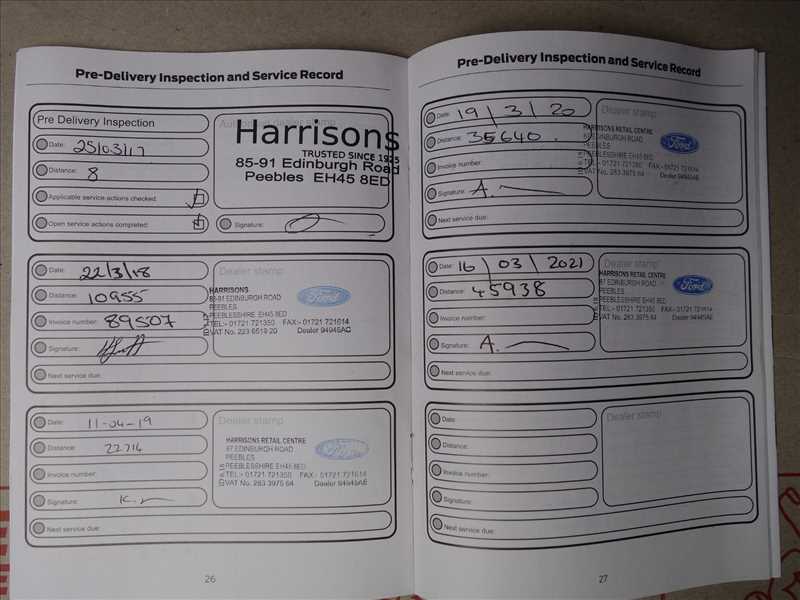 Pre-Delivery Inspection and Service Record
Pre Delivery Inspection
Date: 25/03/17
Distance: 8
Applicable service actions checked
Open service actions completed:
Authorised dealer stamp
Harrisons
TRUSTED SINCE 1925
85-91 Edinburgh Road
Peebles EH45 8ED
Signature:
Date: 22/3/18
Distance: 10955
Invoice number: 89507
Signature:
Next service due:
Dealer stamp
HARRISONS
85-91 EDINBURGH ROAD
PEEBLES
PEEBLESSHIRE EH45 8ED
TEL:- 01721 721350 FAX:- 01721 721614
VAT No. Dealer
Ford
Date: 11-04-19
Distance: 22714
Invoice number:
Signature: K.
Next service due:
Dealer stamp
HARRISONS RETAIL CENTRE
87 EDINBURGH ROAD
PEEBLES
PEEBLESSHIRE EH45 8ED
TEL:- 01721 721350 FAX:- 01721 721614
VAT No. 283 3975 64 Dealer
Ford
26
Pre-Delivery Inspection and Service Record
Date: 19/3/20
Distance: 35640.
Invoice number:
Signature: A.
Next service due:
Dealer stamp
HARRISONS RETAIL CENTRE
87 EDINBURGH ROAD
PEEBLES
PEEBLESSHIRE EH45 8ED
TEL:- 01721 721350 FAX:- 01721 721614
VAT No. 283 3975 64 Dealer
Ford
Date: 16/03/2021
Distance: 45938
Invoice number:
Signature: A.
Next service due:
Dealer stamp
HARRISONS RETAIL CENTRE
87 EDINBURGH ROAD
PEEBLES
PEEBLESSHIRE EH45 8ED
TEL:- 01721 721350 FAX:- 01721 721614
VAT No. 283 3975 64 Dealer
Ford
Date:
Distance:
Invoice number:
Signature:
Next service due:
Dealer stamp
27